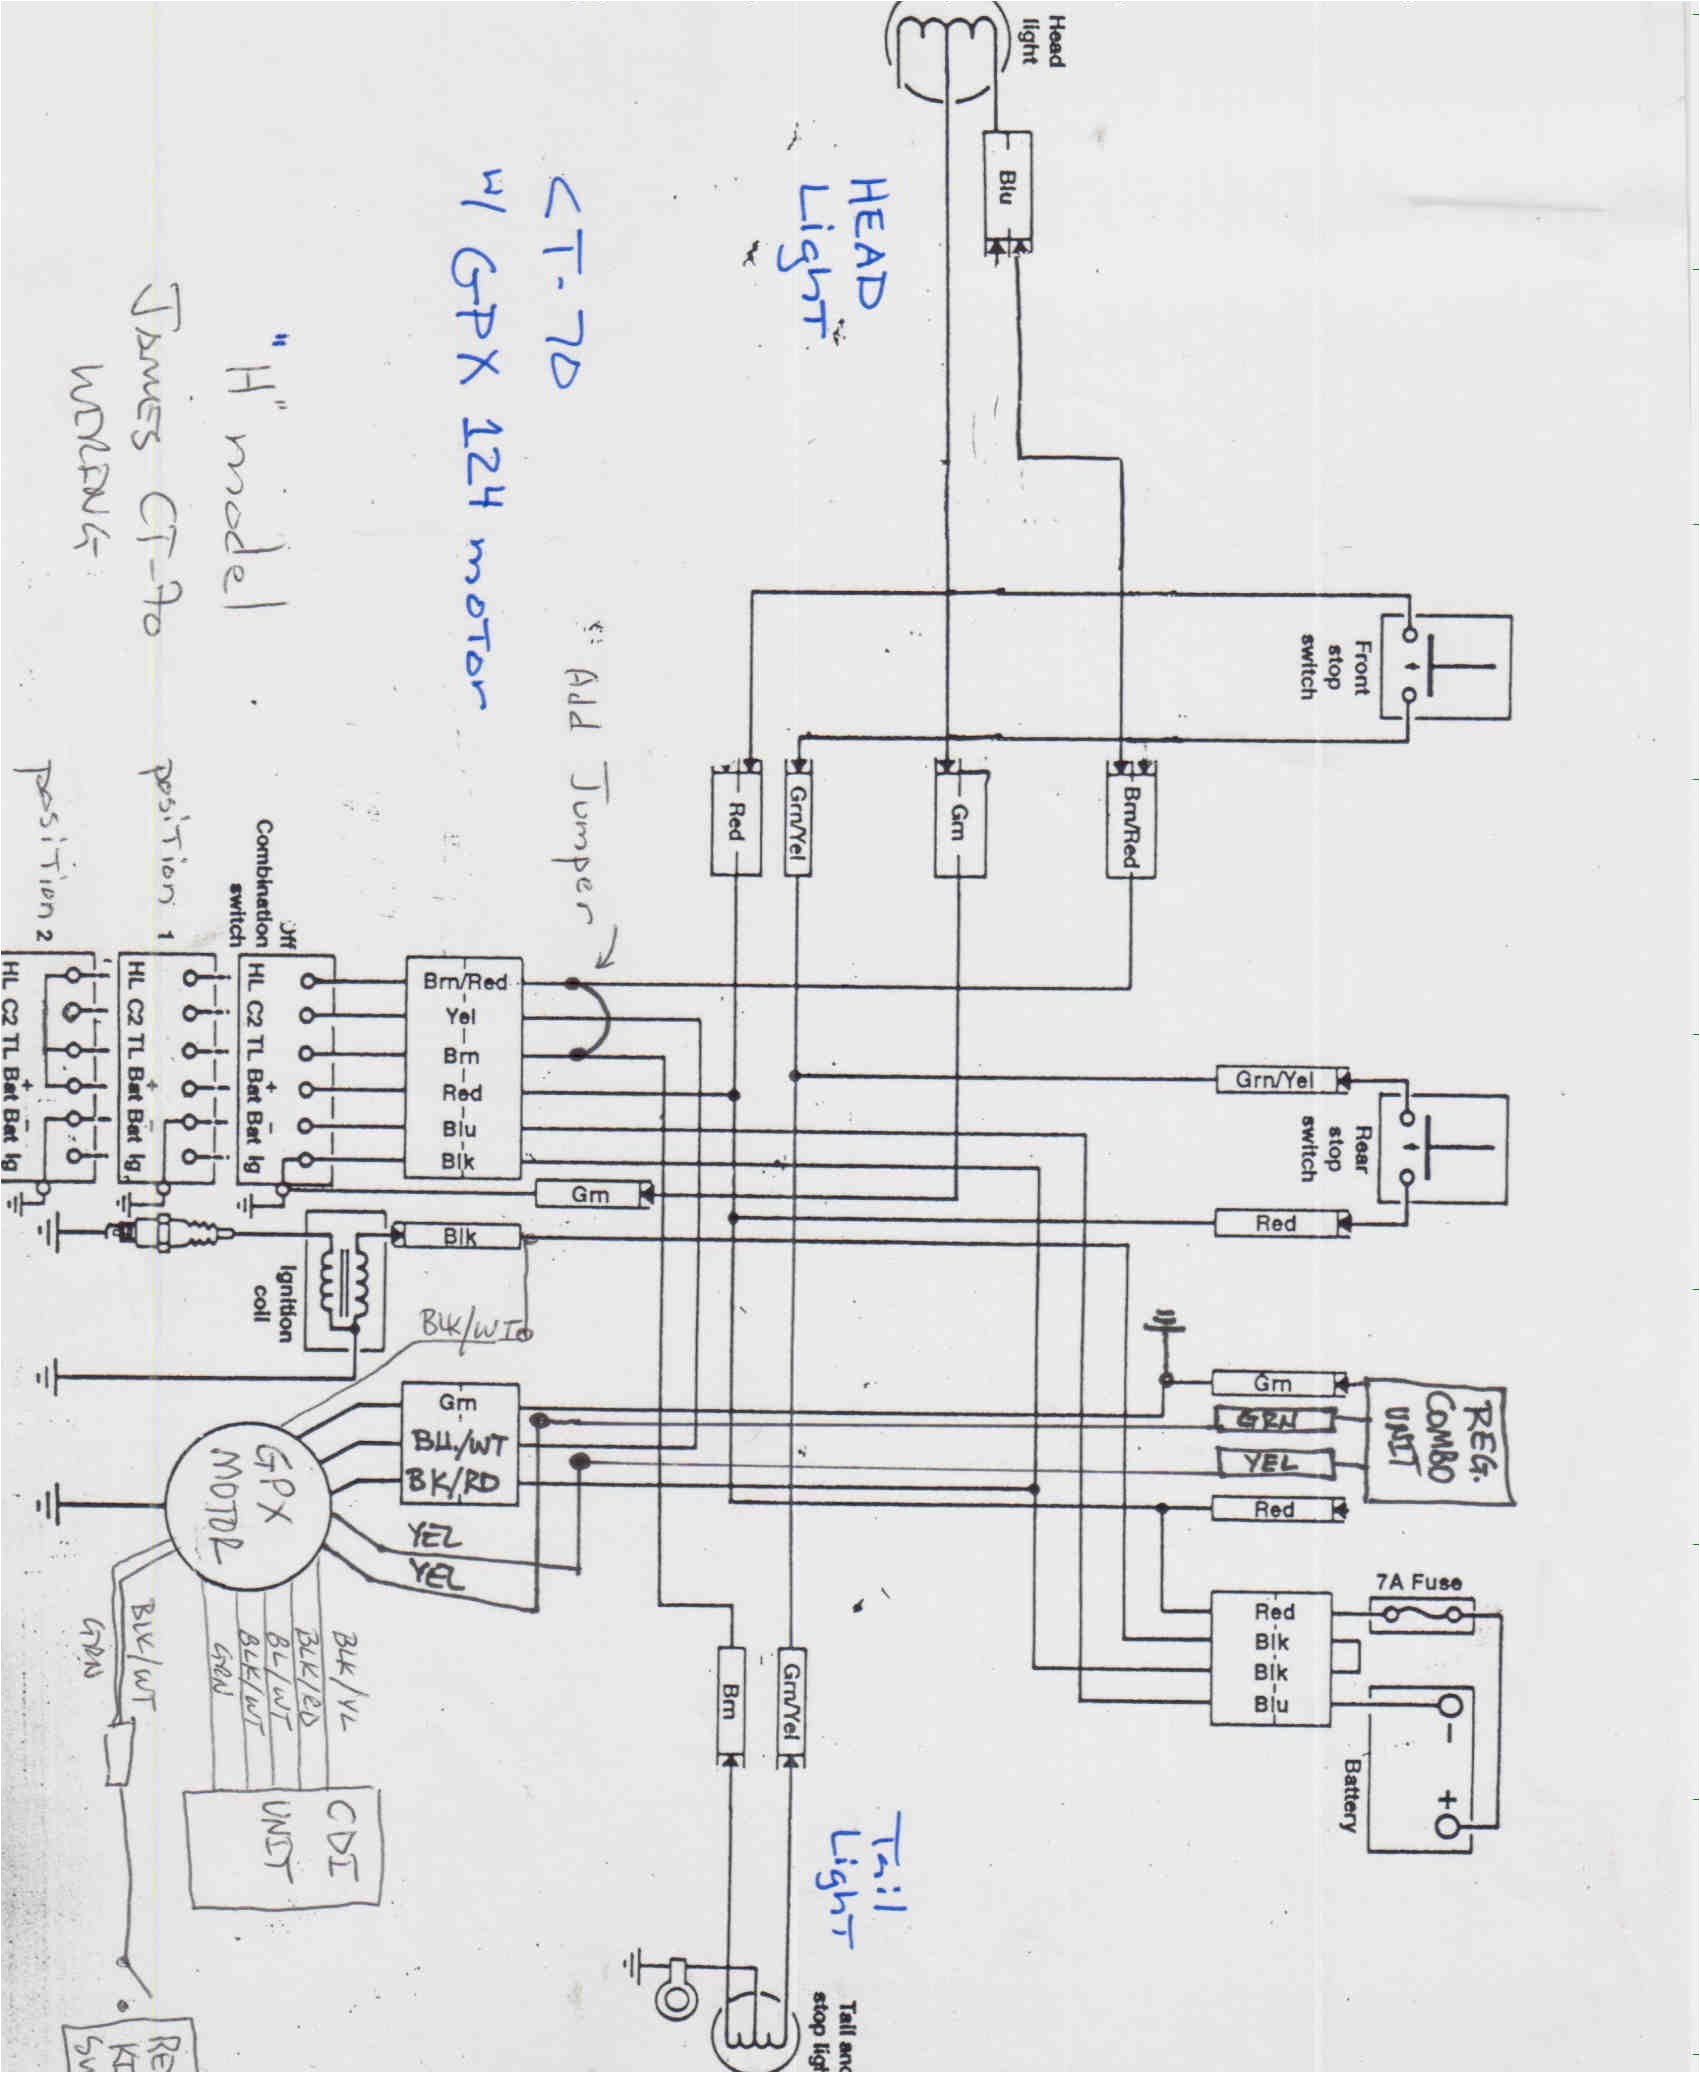 Head
light
Blu
HEAD
Light
CT-70
W/ GPX 124 moTor
"H" model
James CT-70
WIRING
Front
stop
switch
Add Jumper
Red
Grn/Yel
Grn
Brn/Red
position 1
position 2
Combination
switch
HL C2 TL Bat Bat Ig
+ -
1
HL C2 TL Bat Bat Ig
+ -
2
HL C2 TL Bat Bat Ig
+ -
Brn/Red
Yel
Brn
Red
Blu
Blk
Grn
Blk
Grn/Yel
Red
Rear
stop
switch
Ignition
coil
Grn
GRN
YEL
Red
REG.
COMBO
UNIT
Grn
BK/RD
YEL
YEL
GPX
MOTOR
BLK/WT
GRN
BLK/YL
BLK/RD
BL/WT
BLK/WT
GRN
CDI
UNIT
Brn
Grn/Yel
7A Fuse
Red
Blk
Blk
Blu
- +
Battery
Tail
Light
Tail and